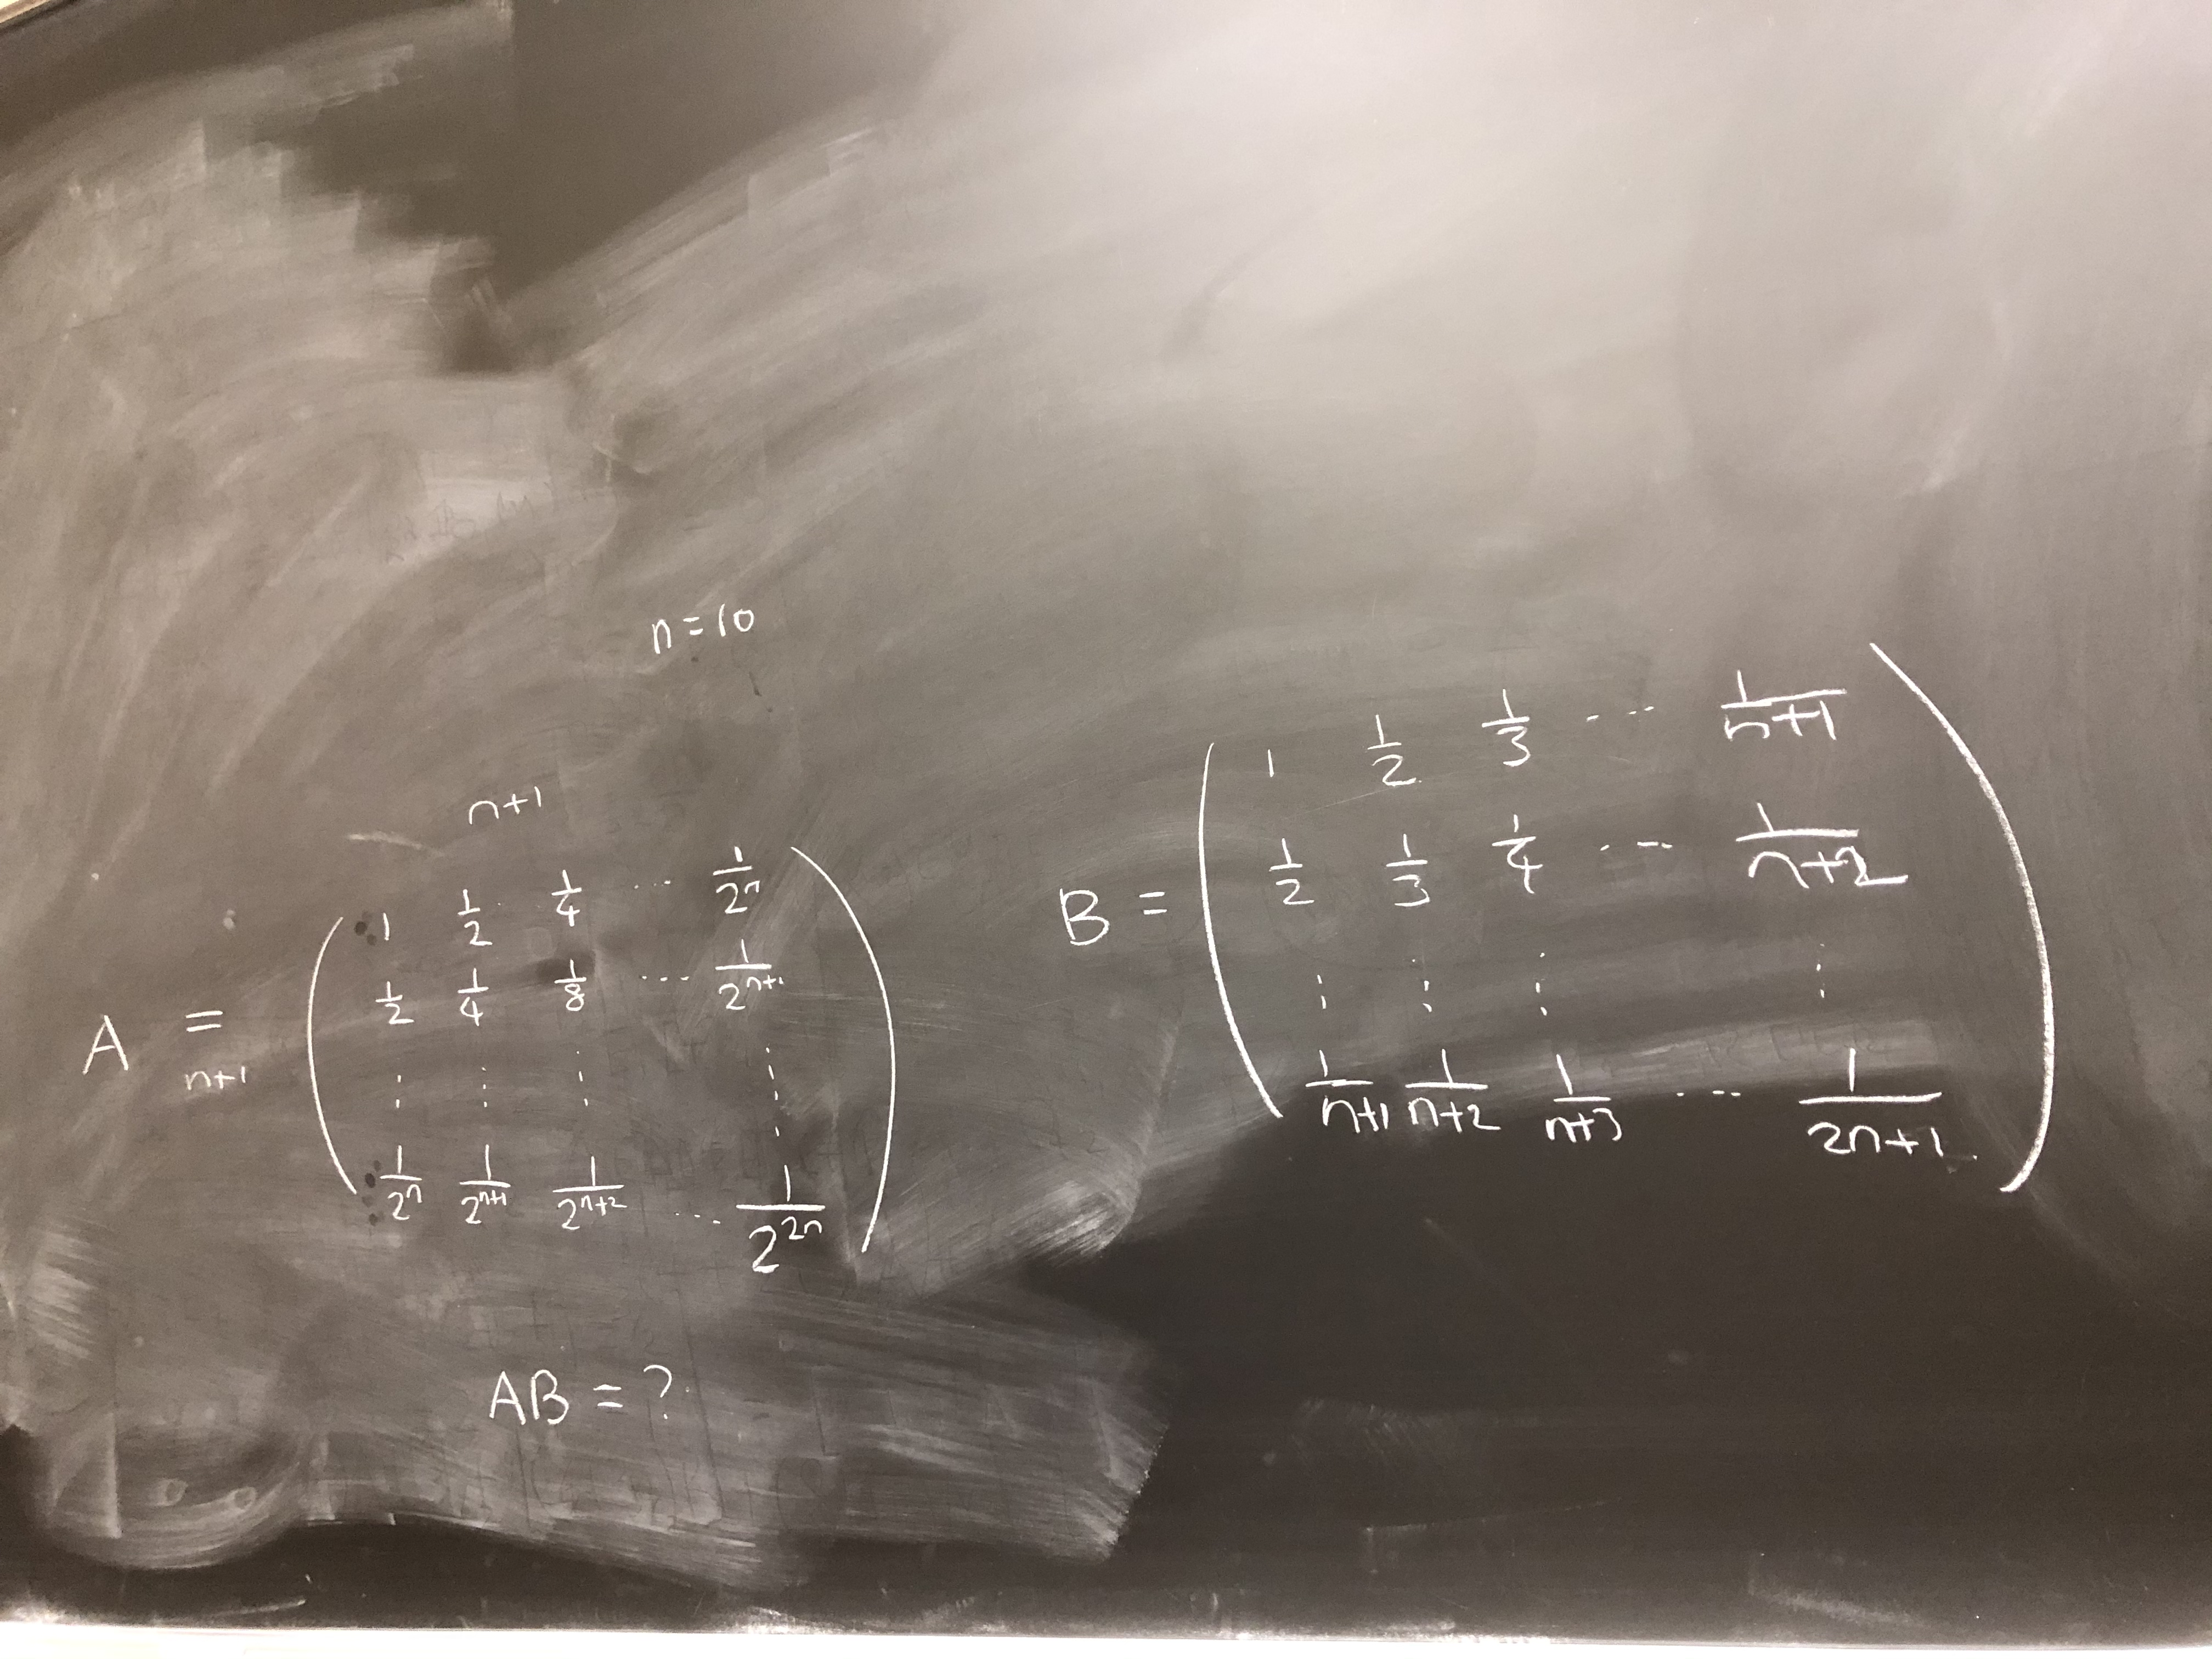 n=10
n+1
A = n+1
( 1 1/2 1/4 ... 1/2^n
1/2 1/4 1/8 ... 1/2^{n+1}
⋮ ⋮ ⋮ ⋮
1/2^n 1/2^{n+1} 1/2^{n+2} ... 1/2^{2n} )
B =
( 1 1/2 1/3 ... 1/n+1
1/2 1/3 1/4 ... 1/n+2
⋮ ⋮ ⋮ ⋮
1/n+1 1/n+2 1/n+3 ... 1/2n+1 )
AB = ?